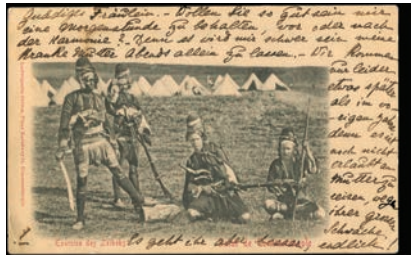 Gnädiges Fräulein. – Wollen Sie so gut sein mir
eine Morgenstunde zu behalten vor oder nach
der Harmonie? Denn es wird mir schwer sein meine
kranke Mutter Abends allein zu lassen. – Wir kommen
nur leider
etwas später
als im vo-
rigen Jahr
denn erst
noch nicht
erlaubt
Mutter zu
reisen,
ihrer grossen
Schwäche
Exercice des Zeibeks
Es geht ihr aber
endlich!